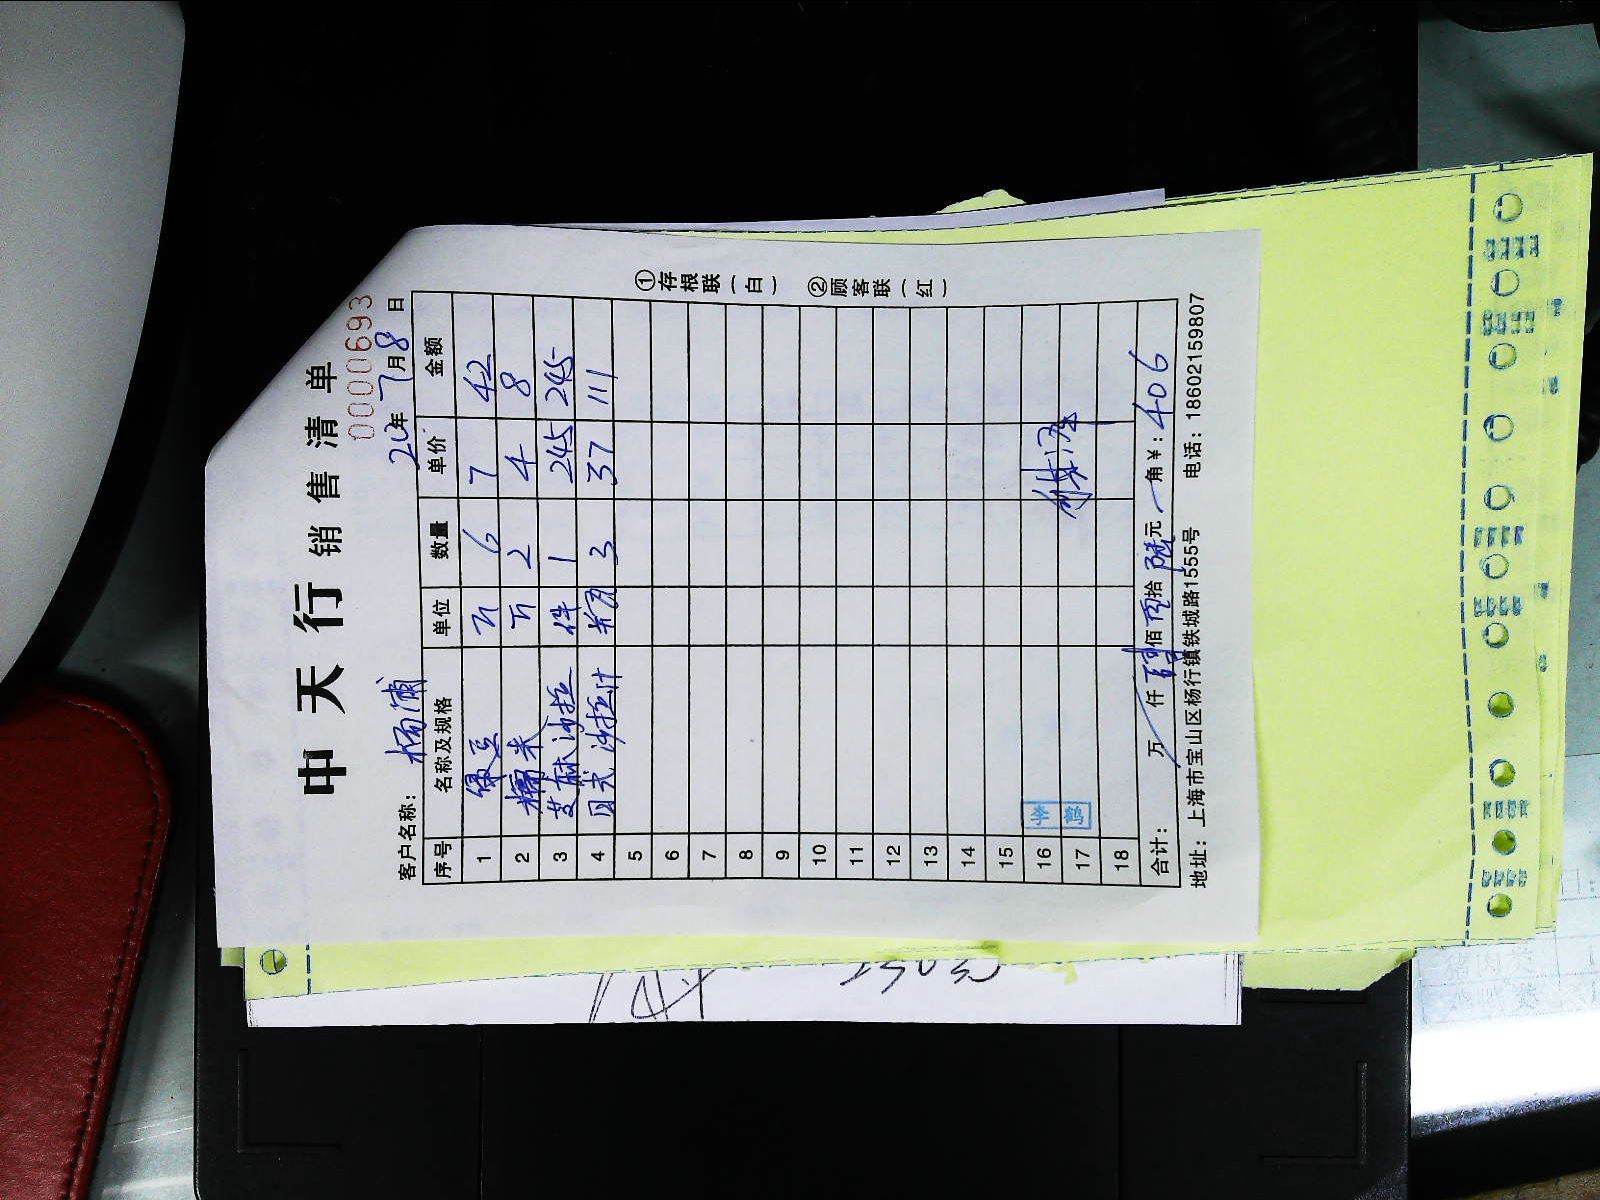 中天行 销售清单
0000693
客户名称： 杨浦 20年7月8日
序号 名称及规格 单位 数量 单价 金额
1 绿豆 斤 6 7 42
2 糯米 斤 2 4 8
3 芝麻沙拉 件 1 245 245
4 日式沙拉汁 3 37 111
5
6
7
8
9
10
11
12
13
14
15
16 李
17 鹤
18
合计： 万 仟 肆佰 拾 陆元 角 ¥：406
地址：上海市宝山区杨行镇铁城路1555号 电话：18602159807
①存根联（白） ②顾客联（红）